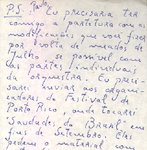 P.S. 
Eu precisaria ter
comigo a partitura com as
modificações que você fizer
por volta de meados de
Julho se possível com
as partes individuais
da orquestra. Eu preci-
sarei enviar aos organi-
zadores do Festival d
Porto Rico onde tocarei
"Saudades do Brasil" em
fins de Setembro. Eles
pedem o material com